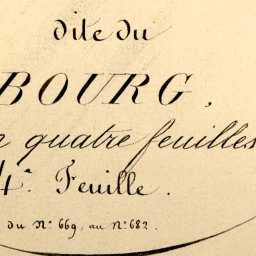 dite du
BOURG,
quatre feuilles
4e Feuille.
du No 669, au No 682.